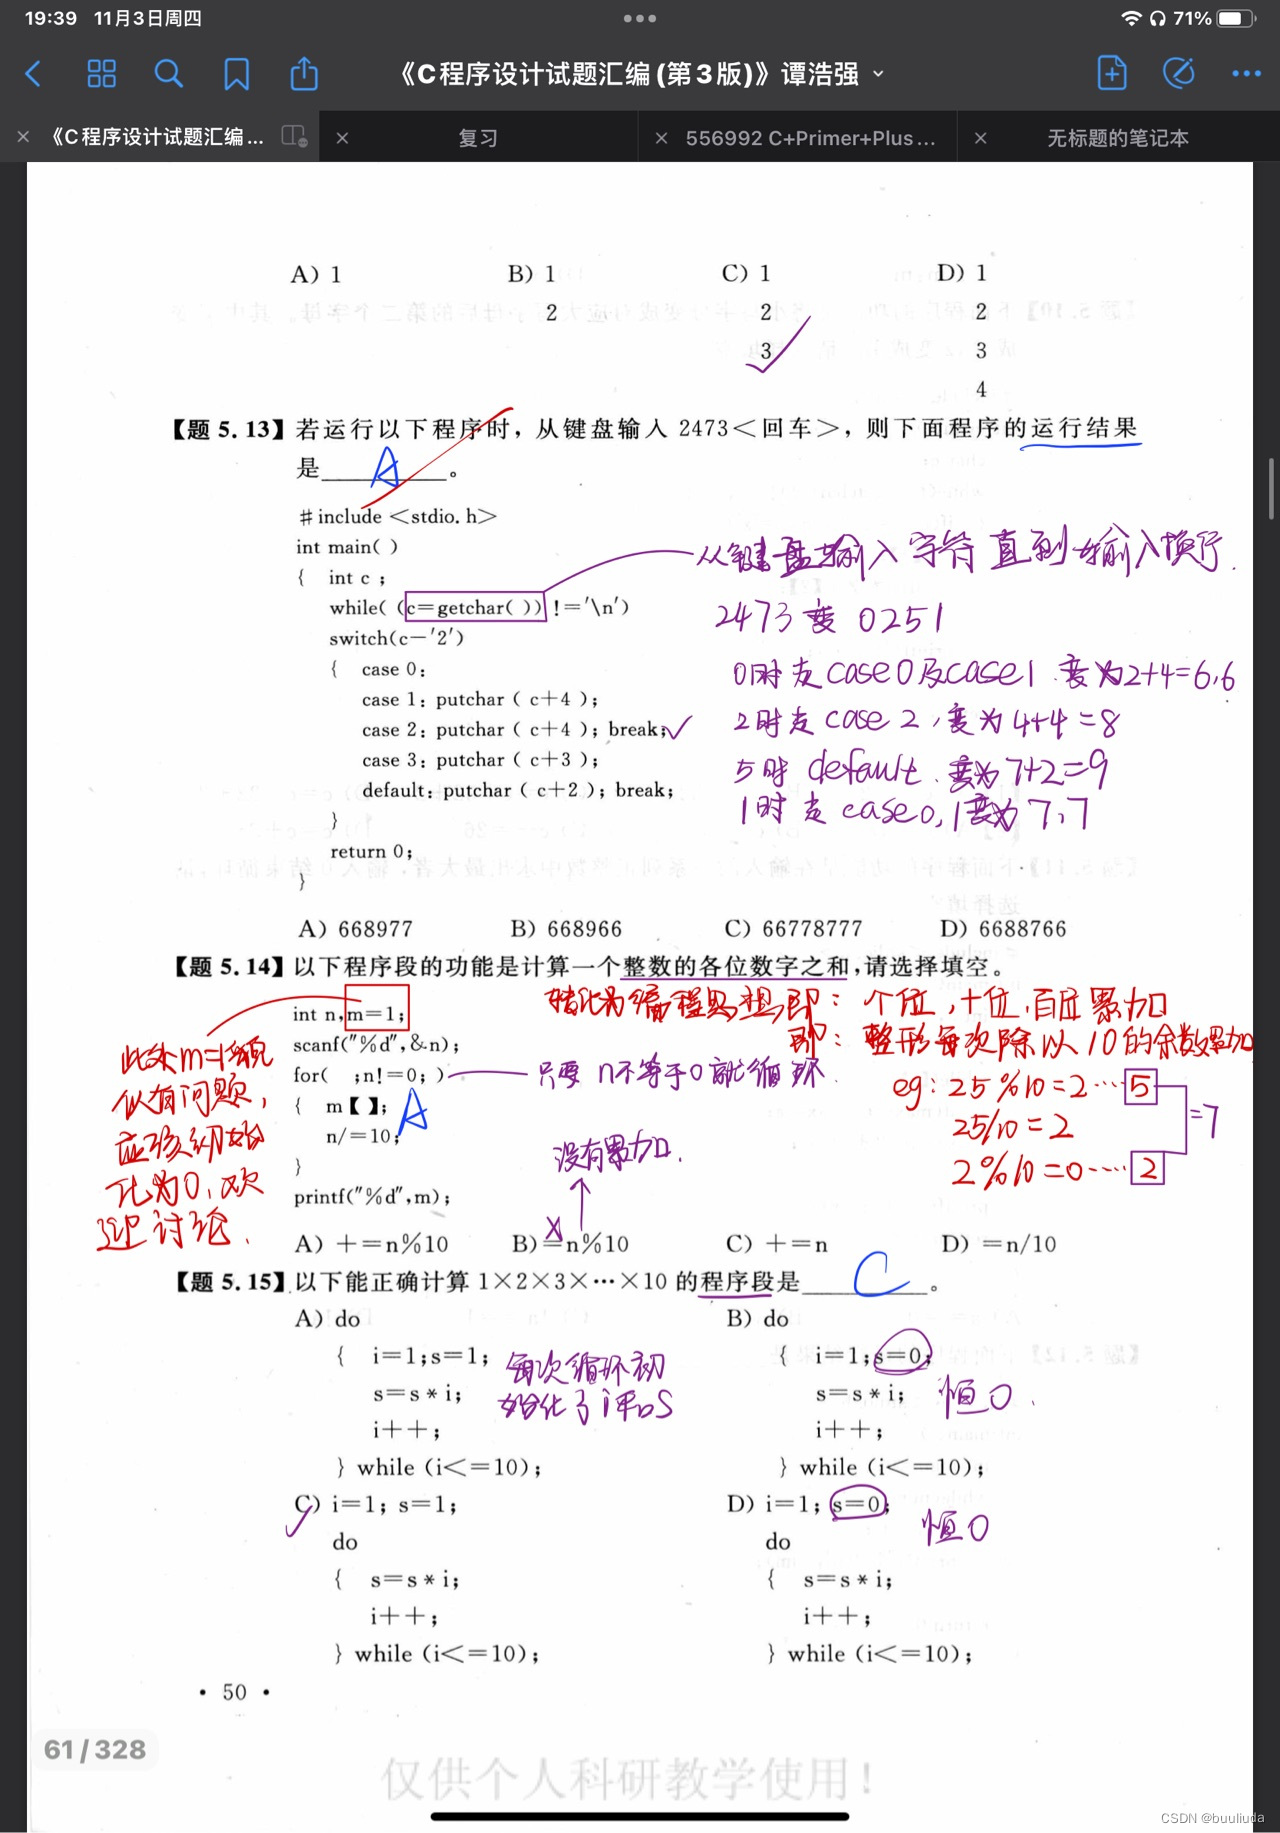 19:39 11月3日周四
71%
《C程序设计试题汇编(第3版)》谭浩强
《C程序设计试题汇编...
复习
556992 C+Primer+Plus...
无标题的笔记本
A) 1 B) 1 C) 1 D) 1
2 2 2
3 3
4
【题 5.13】若运行以下程序时，从键盘输入 2473<回车>，则下面程序的运行结果
是________。
A
#include <stdio.h>
int main( )
{ int c ;
while( (c=getchar( )) !='\n')
switch(c-'2')
{ case 0:
case 1: putchar ( c+4 );
case 2: putchar ( c+4 ); break;
case 3: putchar ( c+3 );
default: putchar ( c+2 ); break;
}
return 0;
}
从键盘输入字符直到输入换行.
2473变 0251
0时走case0及case1 变为2+4=6,6
2时走 case 2, 变为4+4=8
5时 default. 变为7+2=9
1时走 case0,1变为7,7
A) 668977 B) 668966 C) 66778777 D) 6688766
【题 5.14】以下程序段的功能是计算一个整数的各位数字之和,请选择填空。
int n,m=1;
scanf("%d",&n);
for( ;n!=0; )
{ m【 】;
n/=10;
}
printf("%d",m);
A
转化为编程思想即: 个位,十位,百位累加
即: 整形每次除以10的余数累加
只要 n不等于0就循环
eg: 25%10=2…5
25/10=2
2%10=0…2
=7
此处m=1貌
似有问题,
应该初始
化为0,欢
迎讨论.
没有累加.
A) +=n%10 B) =n%10 C) +=n D) =n/10
【题 5.15】以下能正确计算 1×2×3×…×10 的程序段是________。
C
A) do B) do
{ i=1;s=1; { i=1;s=0;
s=s*i; s=s*i;
i++; i++;
} while (i<=10); } while (i<=10);
每次循环初
始化了i和s
恒0.
C) i=1; s=1; D) i=1; s=0;
do do
{ s=s*i; { s=s*i;
i++; i++;
} while (i<=10); } while (i<=10);
恒0
• 50 •
61/328
仅供个人科研教学使用!
CSDN @buuliuda